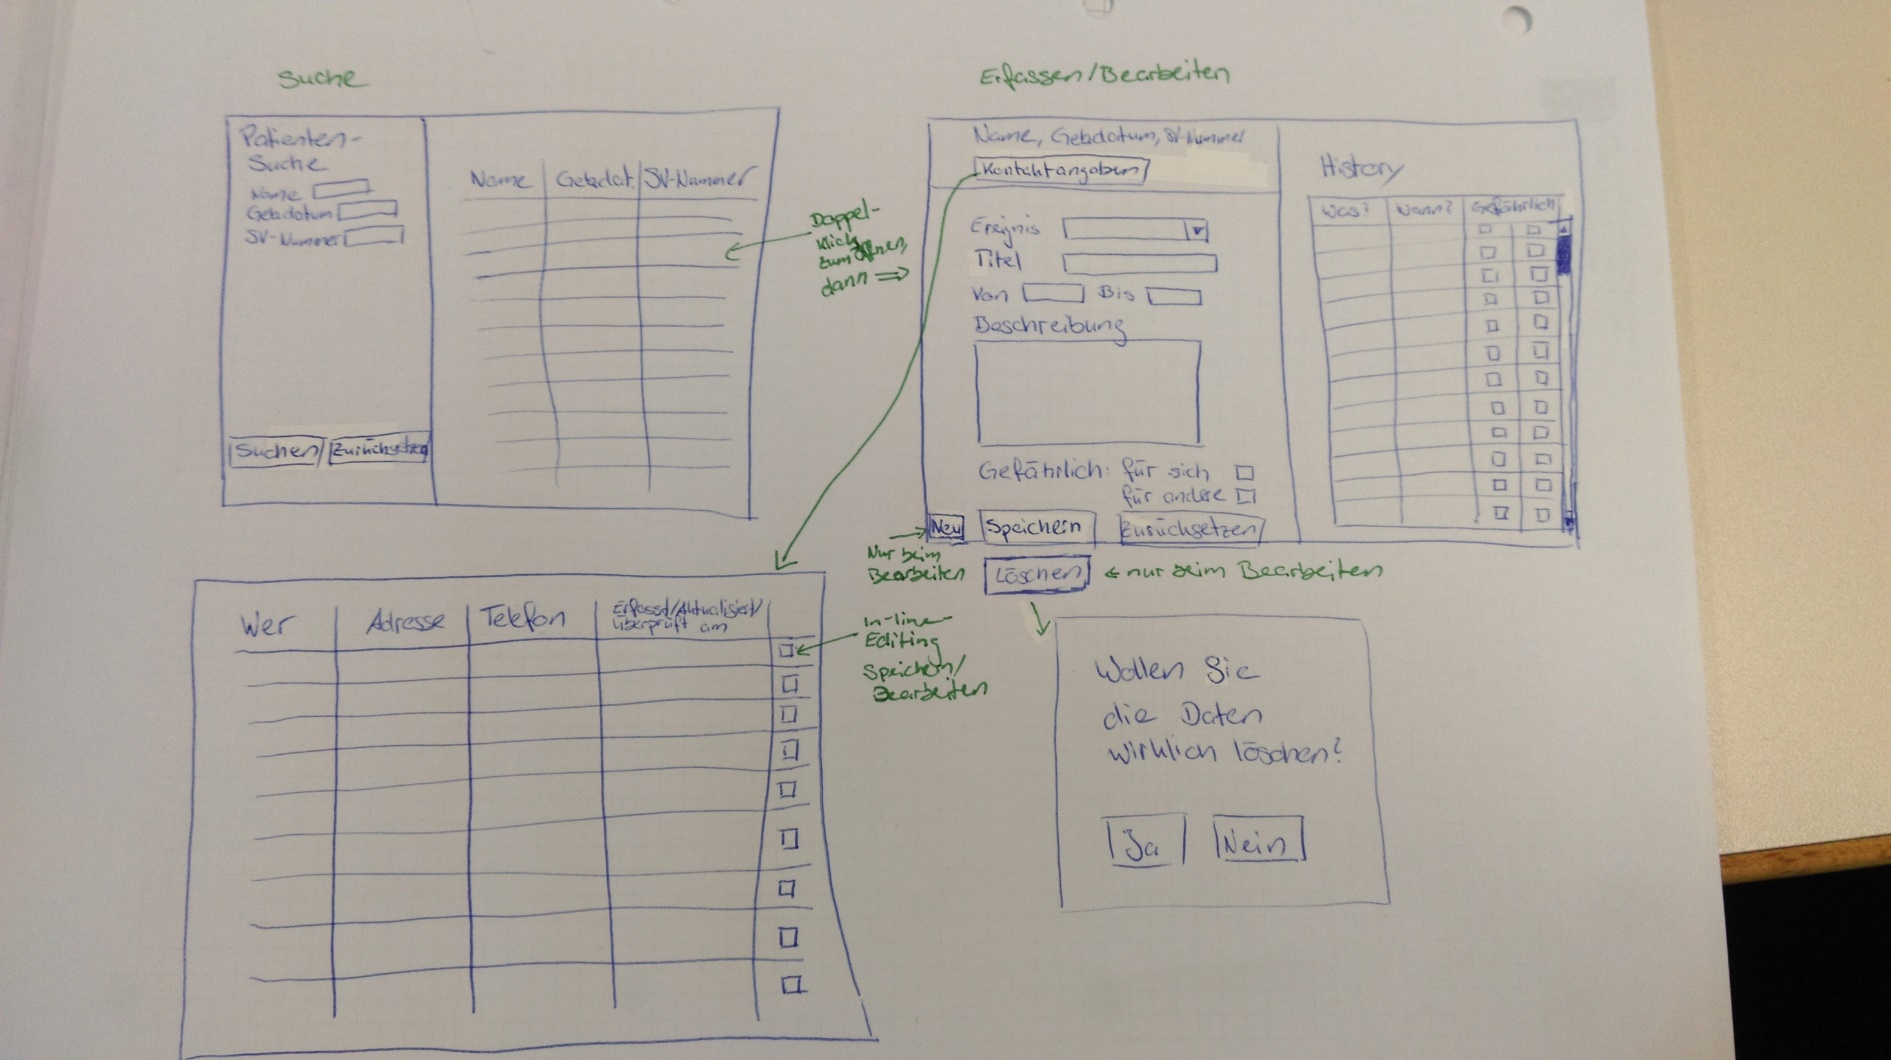 Suche
Patienten-
Suche
Name
Gebdatum
SV-Nummer
Suchen
Zurücksetzen
Name
Gebdat.
SV-Nummer
Doppel-
klick
zum Öffnen,
dann ⇒
Erfassen/Bearbeiten
Name, Gebdatum, SV-Nummer
Kontaktangaben
Ereignis
Titel
Von
Bis
Beschreibung
Gefährlich: für sich
für andere
Neu
Speichern
Zurücksetzen
Nur beim
Bearbeiten
Löschen
← nur beim Bearbeiten
History
Was?
Wann?
Gefährlich
Wer
Adresse
Telefon
Erfasst/Aktualisiert/
überprüft am
In-line-
Editing
Speichern/
Bearbeiten
Wollen Sie
die Daten
wirklich löschen?
Ja
Nein